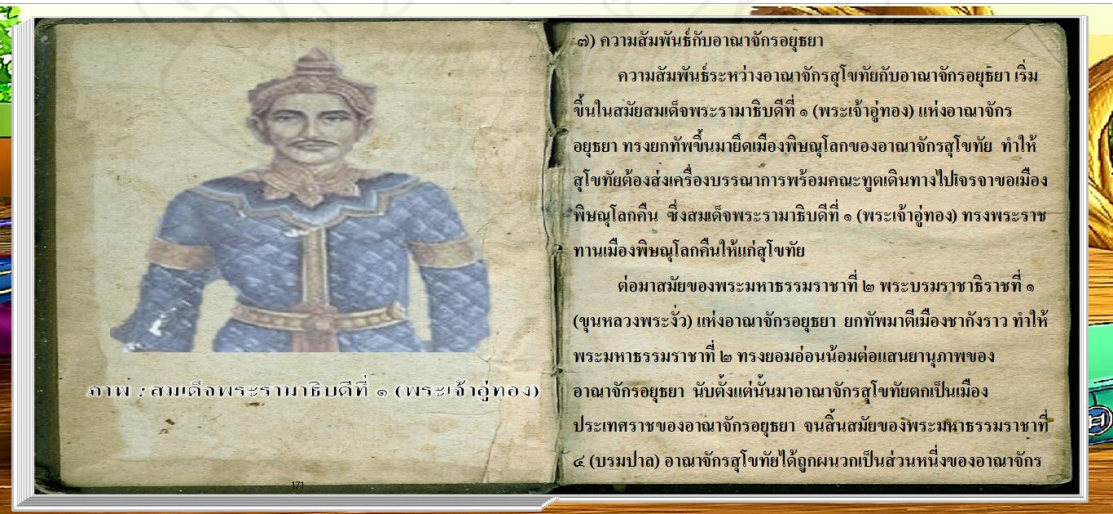 ภาพ : สมเด็จพระรามาธิบดีที่ ๑ (พระเจ้าอู่ทอง)
171
๗) ความสัมพันธ์กับอาณาจักรอยุธยา
ความสัมพันธ์ระหว่างอาณาจักรสุโขทัยกับอาณาจักรอยุธยา เริ่ม
ขึ้นในสมัยสมเด็จพระรามาธิบดีที่ ๑ (พระเจ้าอู่ทอง) แห่งอาณาจักร
อยุธยา ทรงยกทัพขึ้นมายึดเมืองพิษณุโลกของอาณาจักรสุโขทัย ทำให้
สุโขทัยต้องส่งเครื่องบรรณาการพร้อมคณะทูตเดินทางไปเจรจาขอเมือง
พิษณุโลกคืน ซึ่งสมเด็จพระรามาธิบดีที่ ๑ (พระเจ้าอู่ทอง) ทรงพระราช
ทานเมืองพิษณุโลกคืนให้แก่สุโขทัย
ต่อมาสมัยของพระมหาธรรมราชาที่ ๒ พระบรมราชาธิราชที่ ๑
(ขุนหลวงพระงั่ว) แห่งอาณาจักรอยุธยา ยกทัพมาตีเมืองชากังราว ทำให้
พระมหาธรรมราชาที่ ๒ ทรงยอมอ่อนน้อมต่อแสนยานุภาพของ
อาณาจักรอยุธยา นับตั้งแต่นั้นมาอาณาจักรสุโขทัยตกเป็นเมือง
ประเทศราชของอาณาจักรอยุธยา จนสิ้นสมัยของพระมหาธรรมราชาที่
๔ (บรมปาล) อาณาจักรสุโขทัยได้ถูกผนวกเป็นส่วนหนึ่งของอาณาจักร